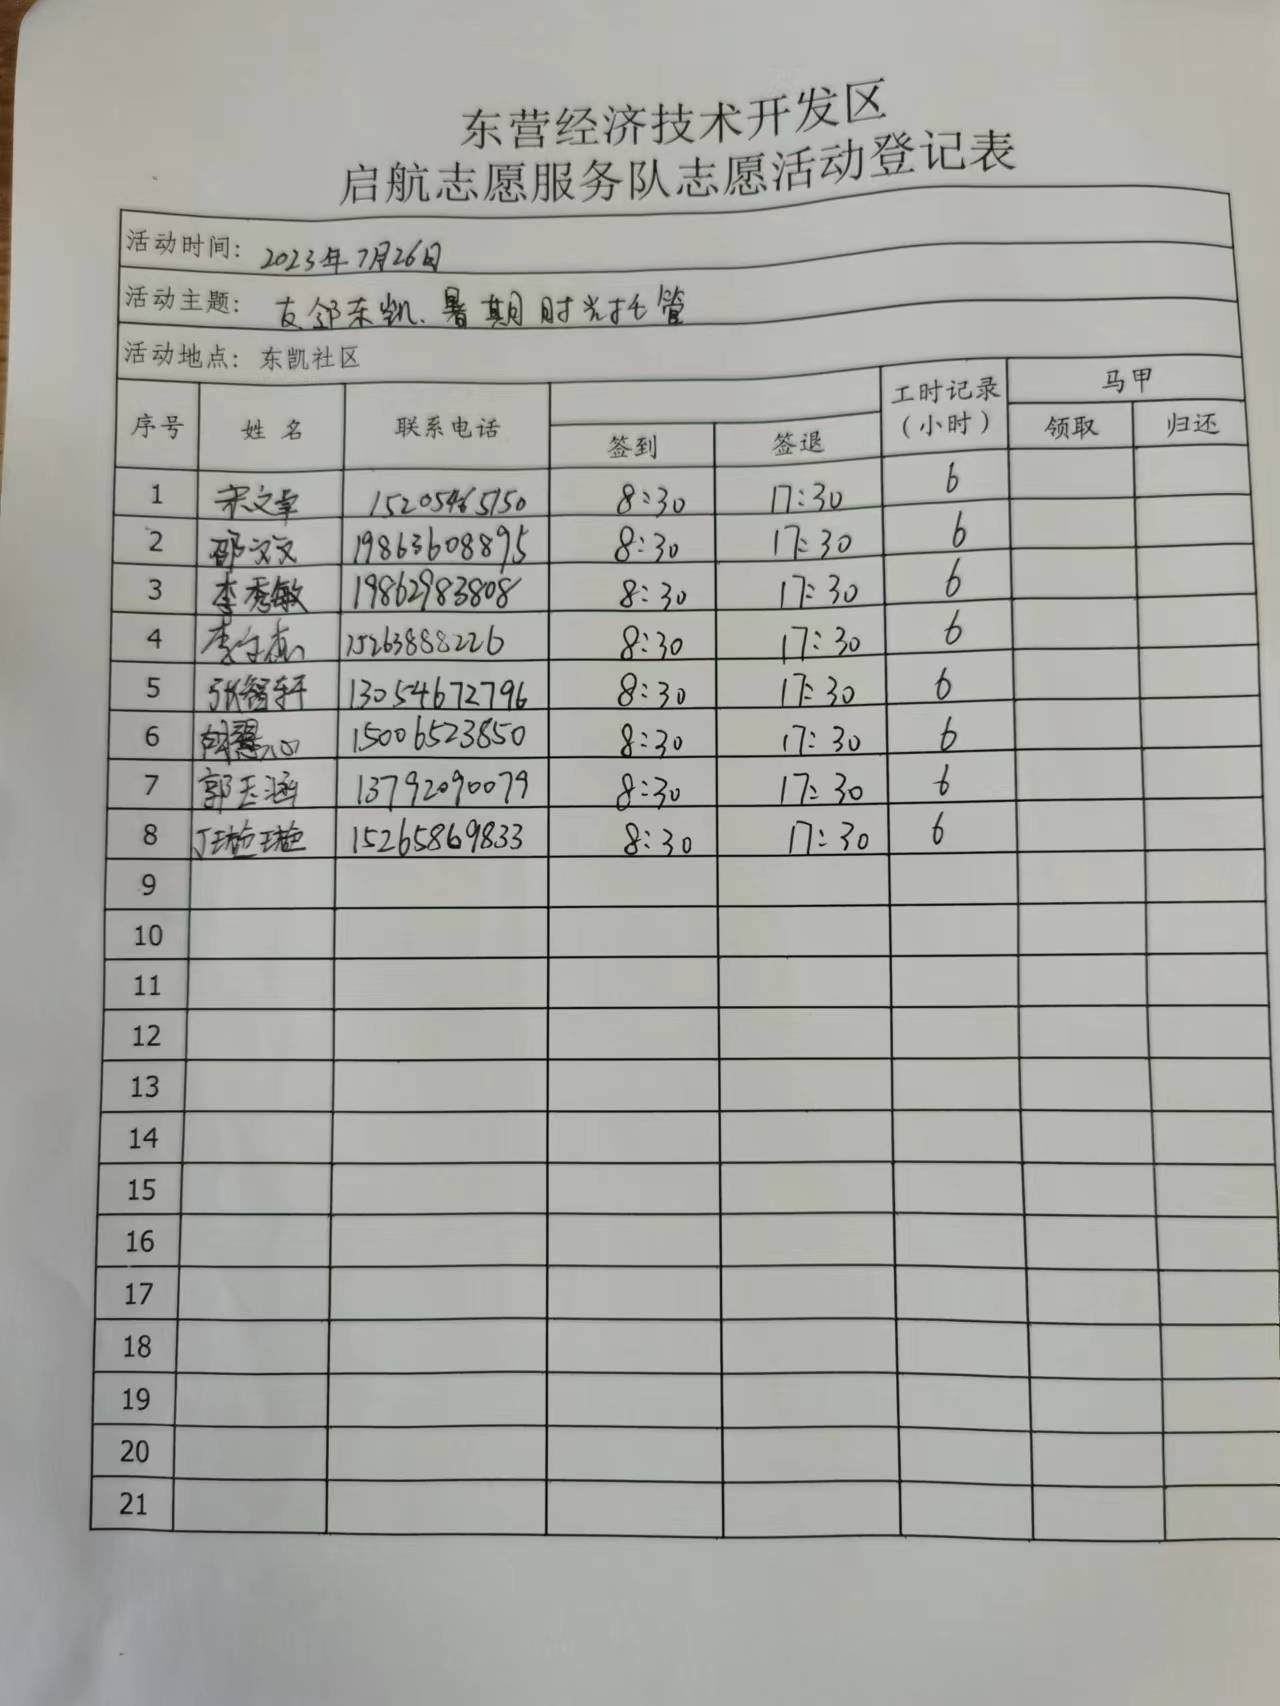 东营经济技术开发区
启航志愿服务队志愿活动登记表
活动时间: 2023年7月26日
活动主题: 友邻东凯.暑期时光托管
活动地点: 东凯社区
序号 姓名 联系电话 签到 签退 工时记录(小时) 马甲 领取 归还
1 宋文卓 15205465150 8:30 17:30 6
2 邵汶文 19863608895 8:30 17:30 6
3 李秀敏 19862983808 8:30 17:30 6
4 李 15263888226 8:30 17:30 6
5 张智轩 13054672796 8:30 17:30 6
6 15006523850 8:30 17:30 6
7 郭玉涵 13792090079 8:30 17:30 6
8 15265869833 8:30 17:30 6
9
10
11
12
13
14
15
16
17
18
19
20
21